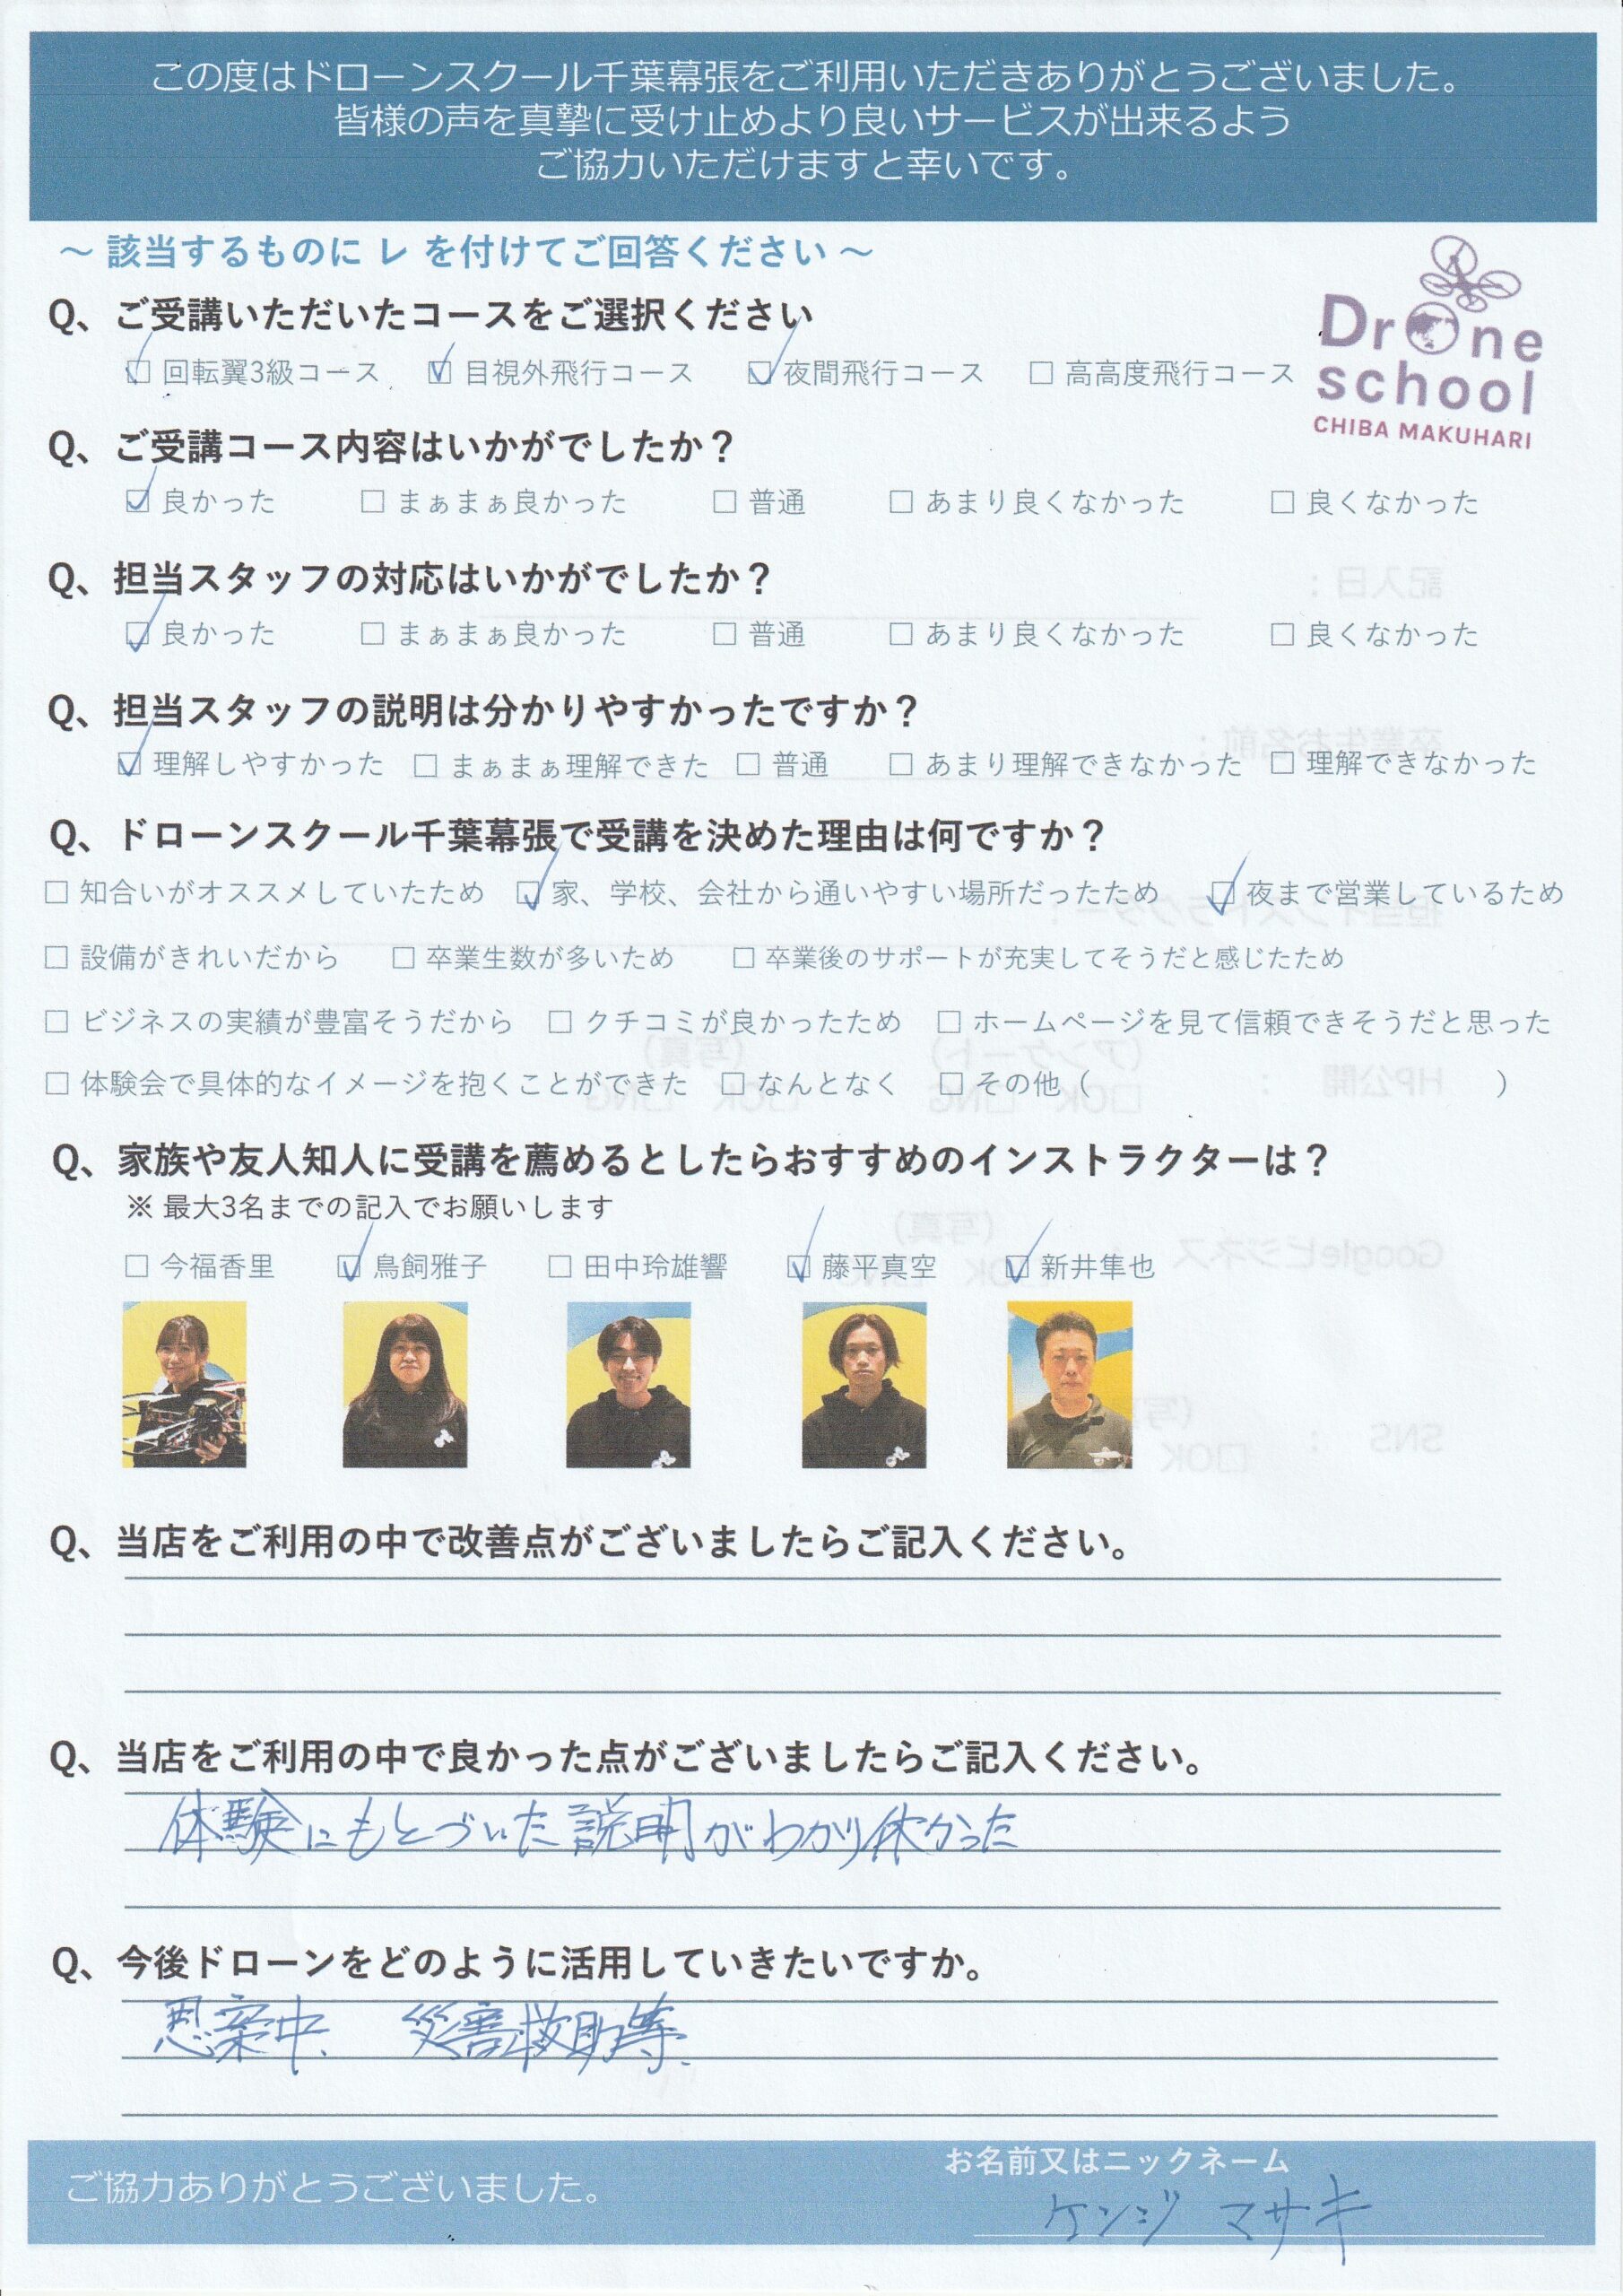 この度はドローンスクール千葉幕張をご利用いただきありがとうございました。
皆様の声を真摯に受け止めより良いサービスが出来るよう
ご協力いただけますと幸いです。
～ 該当するものに レ を付けてご回答ください ～
Drone
school
CHIBA MAKUHARI
Q、ご受講いただいたコースをご選択ください
☑ 回転翼3級コース ☑ 目視外飛行コース ☑ 夜間飛行コース □ 高高度飛行コース
Q、ご受講コース内容はいかがでしたか？
☑ 良かった □ まぁまぁ良かった □ 普通 □ あまり良くなかった □ 良くなかった
Q、担当スタッフの対応はいかがでしたか？
☑ 良かった □ まぁまぁ良かった □ 普通 □ あまり良くなかった □ 良くなかった
Q、担当スタッフの説明は分かりやすかったですか？
☑ 理解しやすかった □ まぁまぁ理解できた □ 普通 □ あまり理解できなかった □ 理解できなかった
Q、ドローンスクール千葉幕張で受講を決めた理由は何ですか？
□ 知合いがオススメしていたため ☑ 家、学校、会社から通いやすい場所だったため ☑ 夜まで営業しているため
□ 設備がきれいだから □ 卒業生数が多いため □ 卒業後のサポートが充実してそうだと感じたため
□ ビジネスの実績が豊富そうだから □ クチコミが良かったため □ ホームページを見て信頼できそうだと思った
□ 体験会で具体的なイメージを抱くことができた □ なんとなく □ その他（ ）
Q、家族や友人知人に受講を薦めるとしたらおすすめのインストラクターは？
※ 最大3名までの記入でお願いします
□ 今福香里 ☑ 鳥飼雅子 □ 田中玲雄響 ☑ 藤平真空 ☑ 新井隼也
Q、当店をご利用の中で改善点がございましたらご記入ください。
Q、当店をご利用の中で良かった点がございましたらご記入ください。
体験にもとづいた説明がわかり休かった
Q、今後ドローンをどのように活用していきたいですか。
思案中、 災害救助等.
ご協力ありがとうございました。
お名前又はニックネーム
ケンジ マサキ